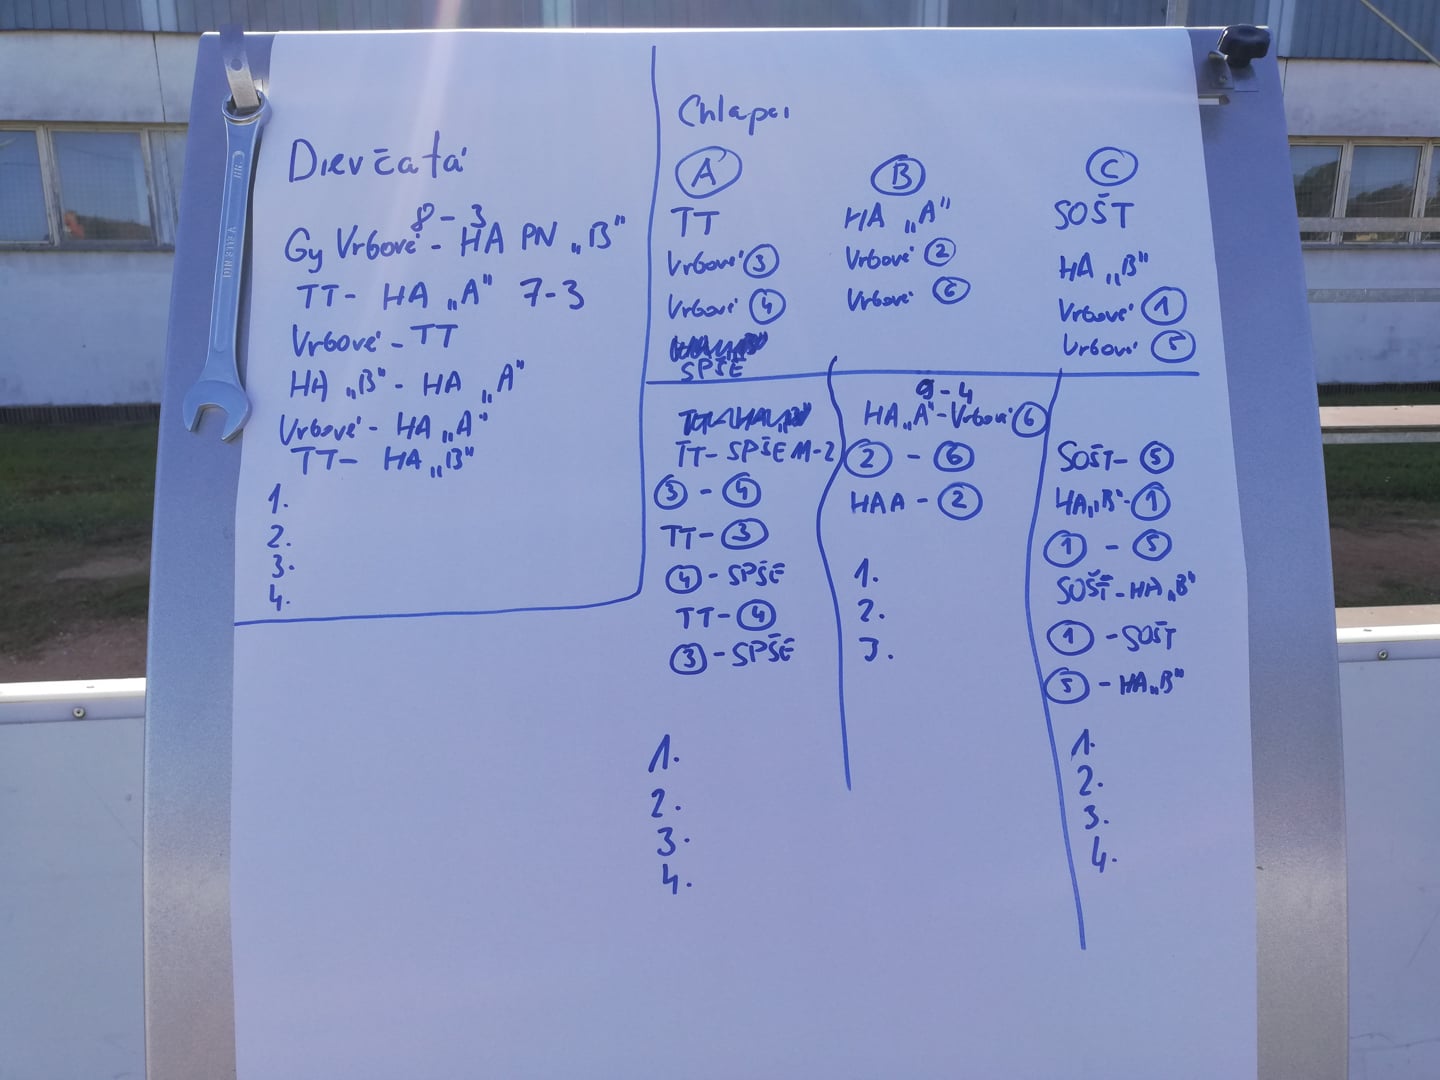 Dievčatá
8 - 3
Gy Vrbové - HA PN „B"
TT - HA „A" 7-3
Vrbové - TT
HA „B" - HA „A"
Vrbové - HA „A"
TT - HA „B"
1.
2.
3.
4.
Chlapci
A
TT
Vrbové 3
Vrbové 4
SPŠE
B
HA „A"
Vrbové 2
Vrbové 6
C
SOŠT
HA „B"
Vrbové 1
Vrbové 5
TT - SPŠE 11-2
3 - 4
TT - 3
4 - SPŠE
TT - 4
3 - SPŠE
1.
2.
3.
4.
9 - 4
HA „A" - Vrbové 6
2 - 6
HAA - 2
1.
2.
3.
SOŠT - 5
HA „B" - 1
1 - 5
SOŠT - HA „B"
1 - SOŠT
5 - HA „B"
1.
2.
3.
4.